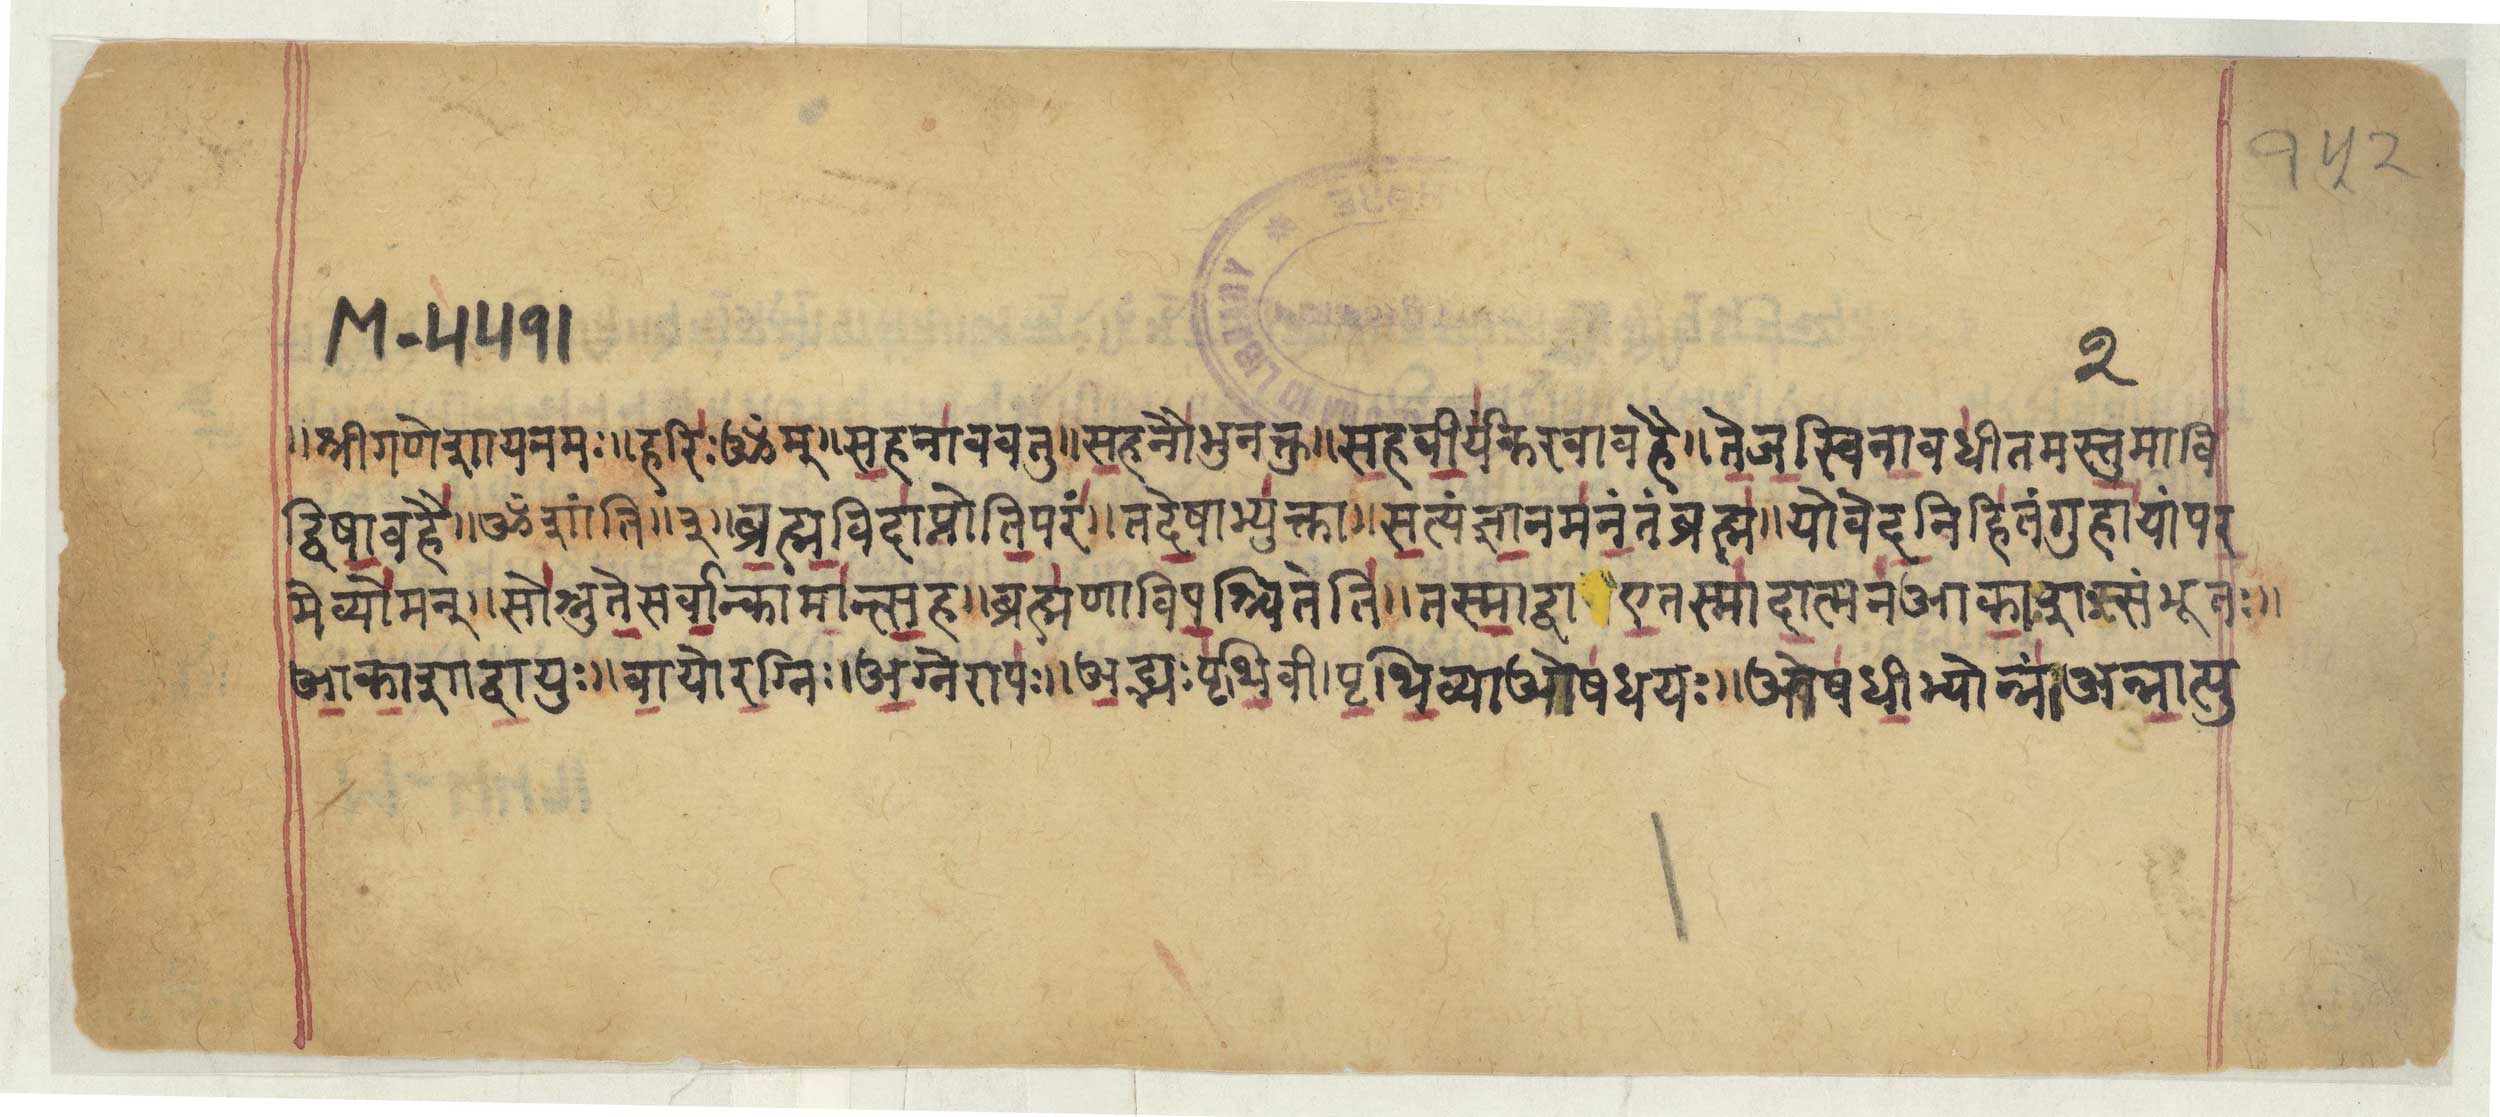 १५२
M-4491
२
॥श्रीगणेशायनमः॥हरिःॐम्॥सहनाववतु॥सहनौभुनक्तु॥सहवीर्यंकरवावहै॥तेजस्विनावधीतमस्तुमावि
द्विषावहै॥ॐशांति॥३॥ब्रह्मविदाप्नोतिपरं॥तदेषाभ्युक्ता॥सत्यंज्ञानमनंतंब्रह्म॥योवेदनिहितंगुहायांपर
मेव्योमन्॥सोश्नुतेसर्वान्कामान्त्सह॥ब्रह्मणाविपश्चितेति॥तस्माद्वा एतस्मादात्मनआकाशस्संभूतः॥
आकाशाद्वायुः॥वायोरग्निः।अग्नेरापः॥अद्भ्यःपृथिवी।पृथिव्याओषधयः॥ओषधीभ्योन्नं।अन्नात्पु
LIBRARY